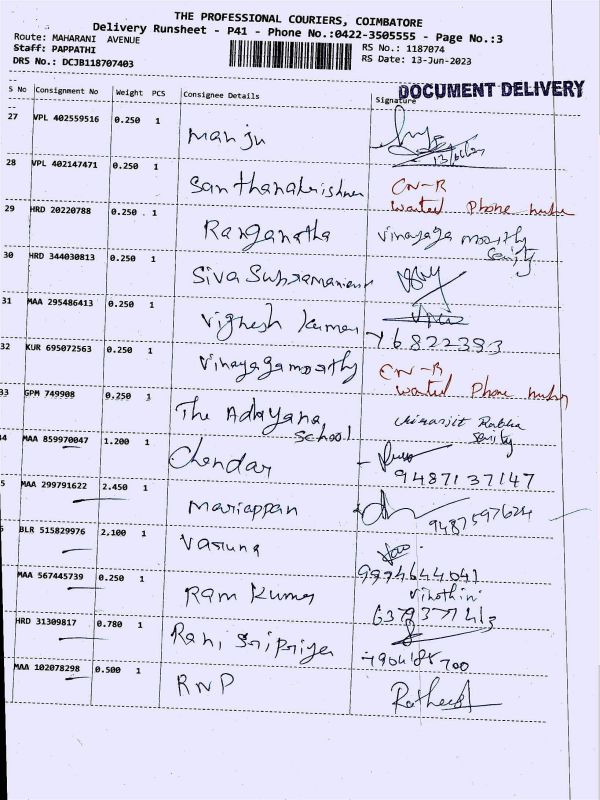 THE PROFESSIONAL COURIERS, COIMBATORE
Delivery Runsheet - P41 - Phone No.:0422-3505555 - Page No.:3
Route: MAHARANI AVENUE
RS No.: 1187074
Staff: PAPPATHI
RS Date: 13-Jun-2023
DRS No.: DCJB118707403
DOCUMENT DELIVERY
S No Consignment No Weight PCS Consignee Details Signature
27 VPL 402559516 0.250 1 Manju
28 VPL 402147471 0.250 1 Santhanakrishnan CN-R
wanted Phone number
29 HRD 20220788 0.250 1 Ranganatha Vinayaga moorthy
30 HRD 344030813 0.250 1 Siva Subramanian
31 MAA 295486413 0.250 1 Vignesh kumar
32 KUR 695072563 0.250 1 Vinayagamoorthy CN-R
wanted Phone number
33 GPM 749908 0.250 1 The Adhyana
School
34 MAA 859970047 1.200 1 Chandar
9487137147
5 MAA 299791622 2.450 1 Mariappan
BLR 515829976 2.100 1 Varuna
9974644041
MAA 567445739 0.250 1 Ram Kumar
HRD 31309817 0.780 1 Rani, Sripriya
MAA 102078298 0.500 1 RNP